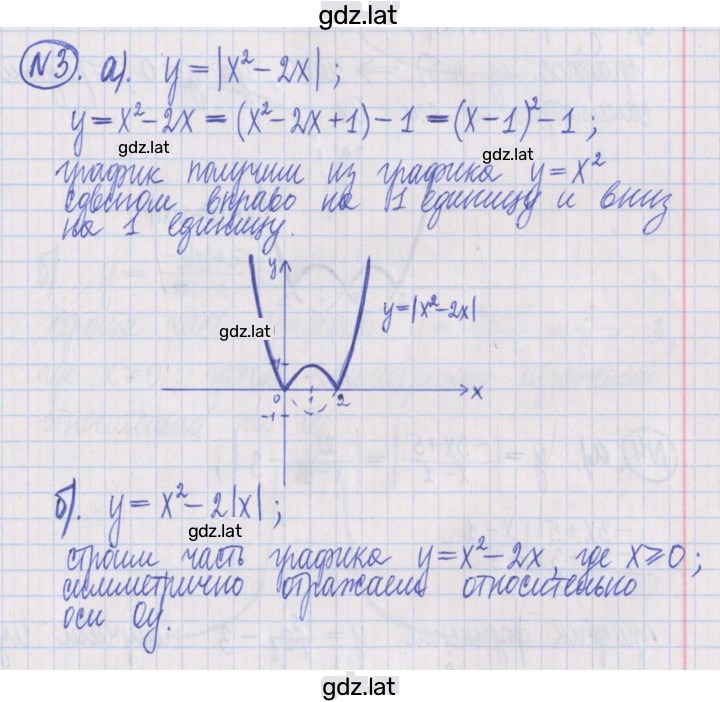 gdz.lat
№3. а). y = |x² - 2x| ;
y = x² - 2x = (x² - 2x + 1) - 1 = (x - 1)² - 1 ;
gdz.lat
gdz.lat
график получим из графика y = x²
сдвигом вправо на 1 единицу и вниз
на 1 единицу.
y
y = |x² - 2x|
gdz.lat
1
0 1 2 x
-1
б). y = x² - 2|x| ;
gdz.lat
строим часть графика y = x² - 2x, где x ⩾ 0 ;
симметрично отражаем относительно
оси Oy.
gdz.lat